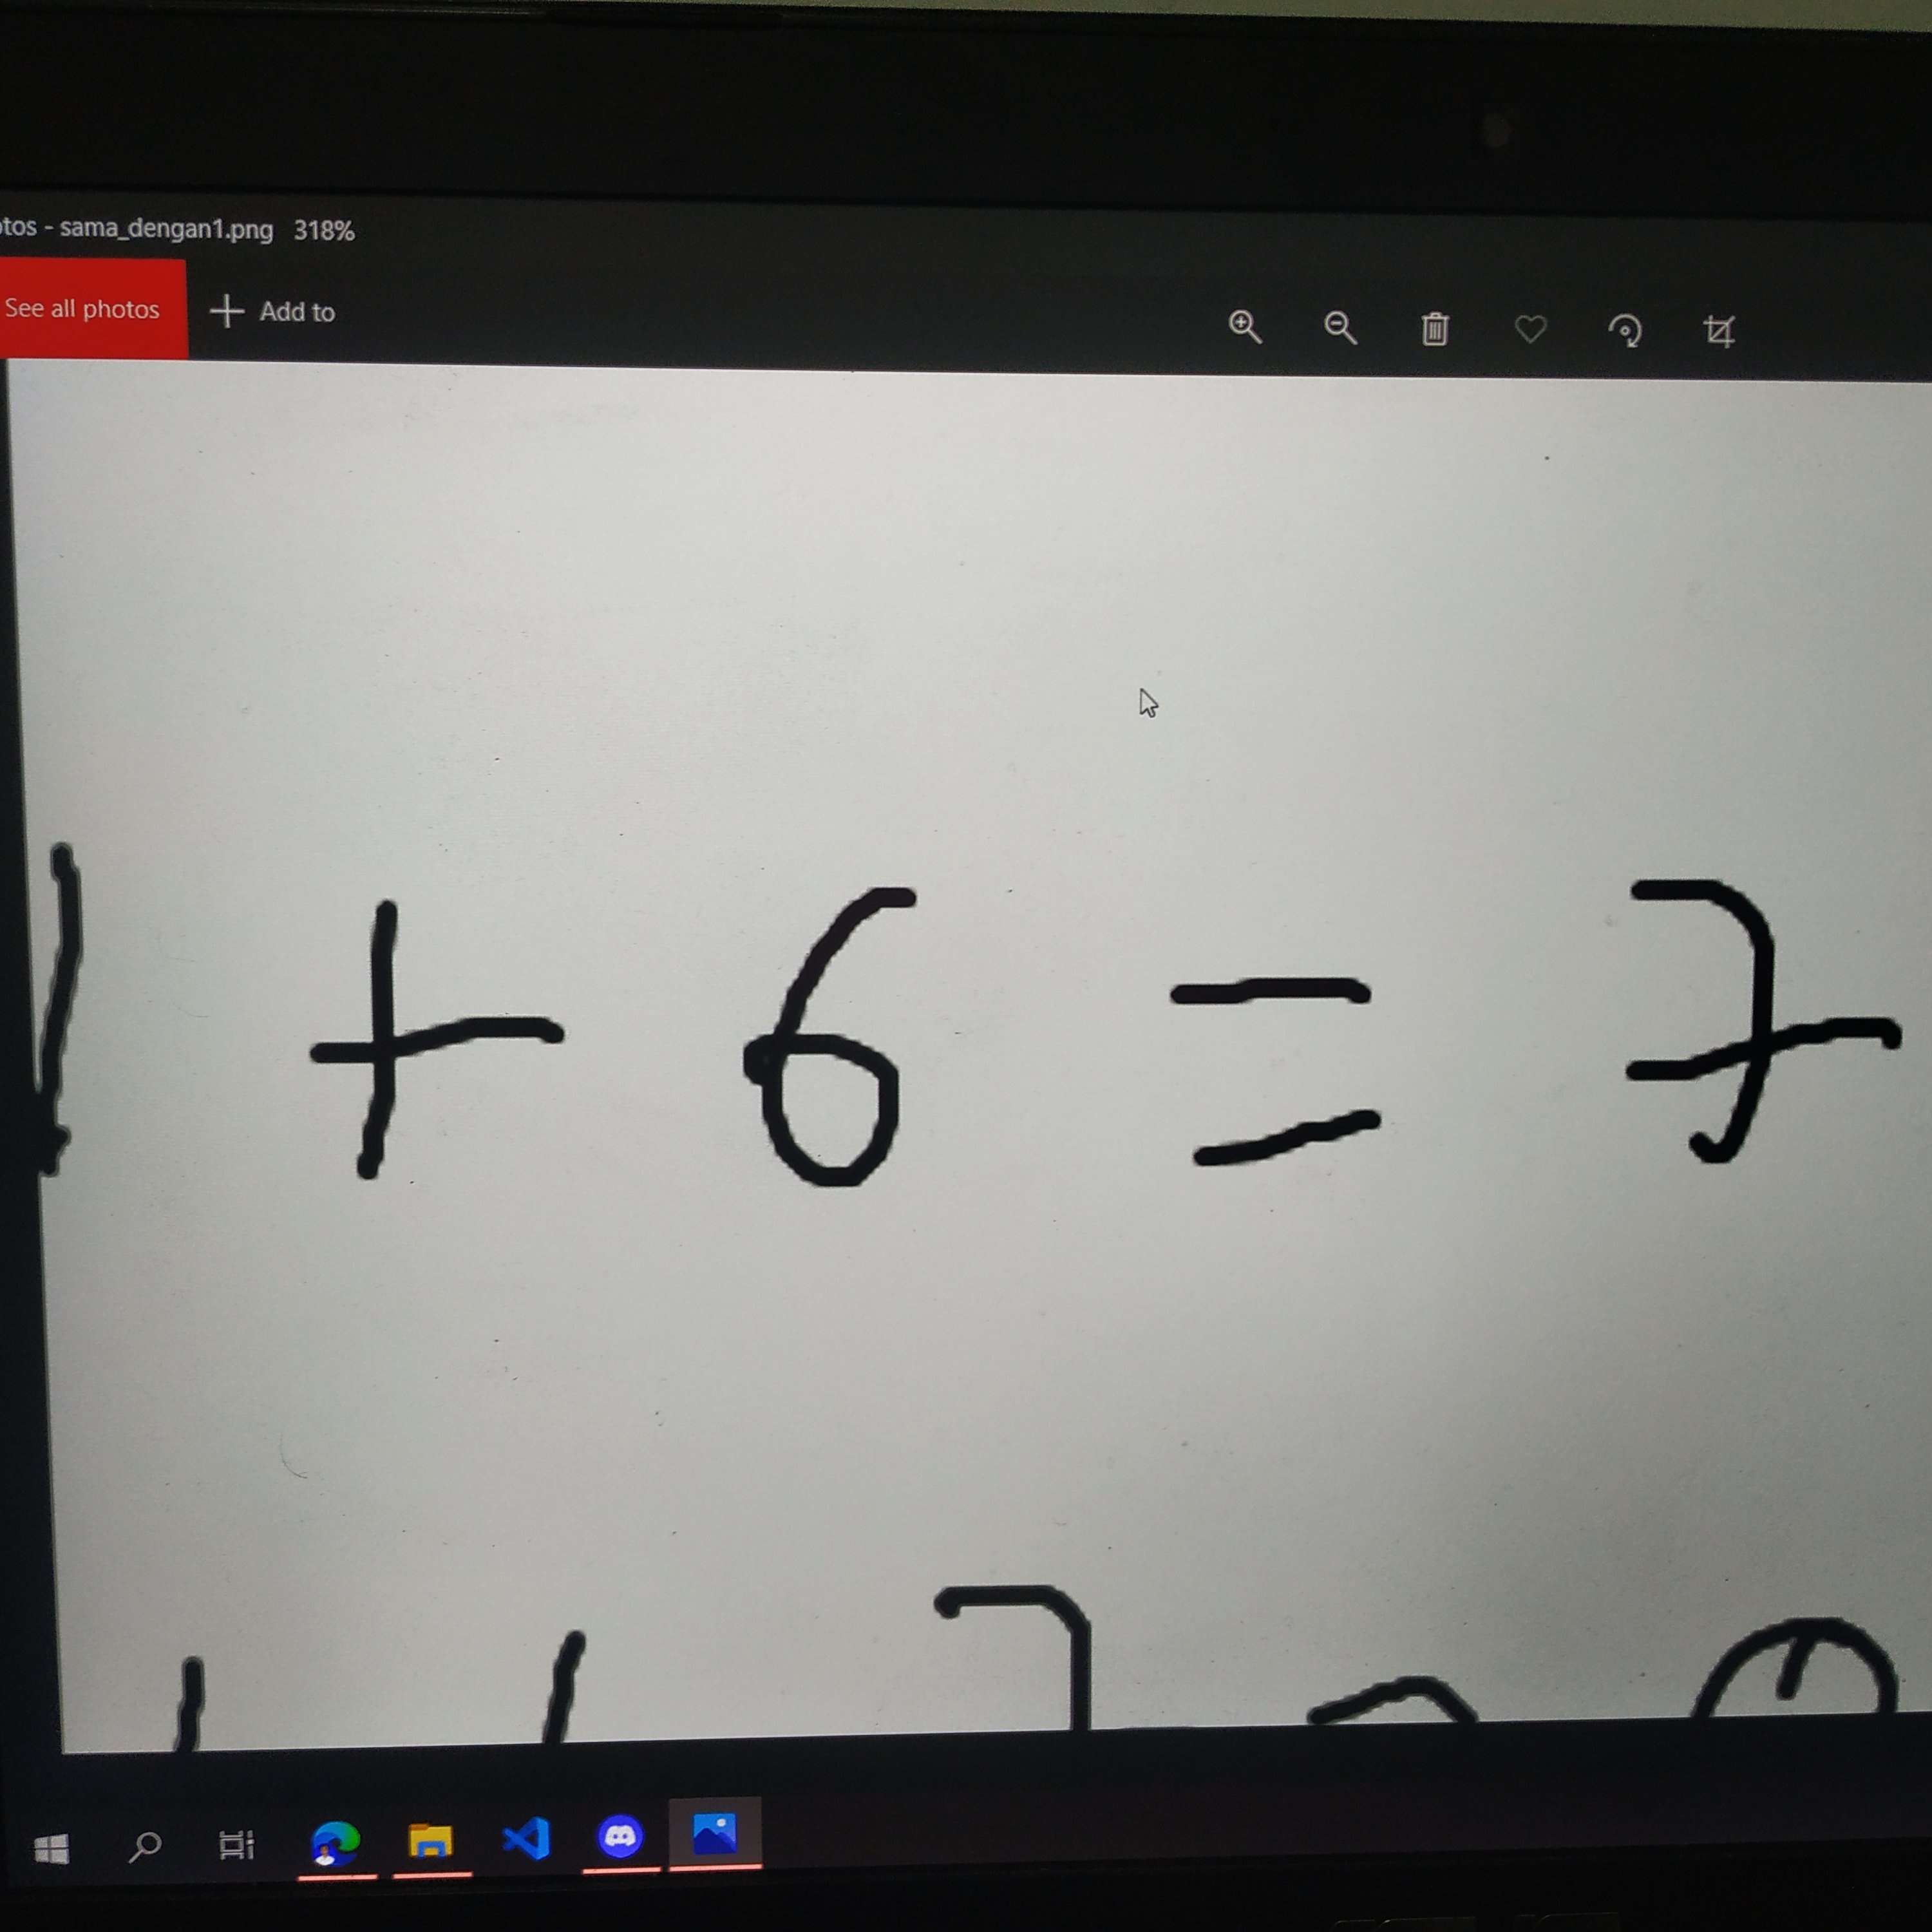 otos - sama_dengan1.png 318%
See all photos Add to
1 + 6 = 7